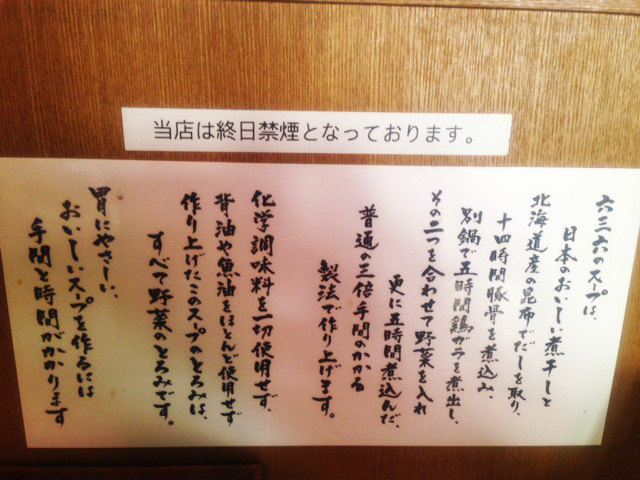 当店は終日禁煙となっております。
六三六のスープは、
日本のおいしい煮干しと
北海道産の昆布でだしを取り、
十四時間豚骨を煮込み、
別鍋で五時間鶏ガラを煮出し、
その二つを合わせて野菜を入れ
更に五時間煮込んだ、
普通の三倍手間のかかる
製法で作り上げます。
化学調味料を一切使用せず、
背油や魚油をほとんど使用せず
作り上げたこのスープのとろみは、
すべて野菜のとろみです。
胃にやさしい、
おいしいスープを作るには
手間と時間がかかります